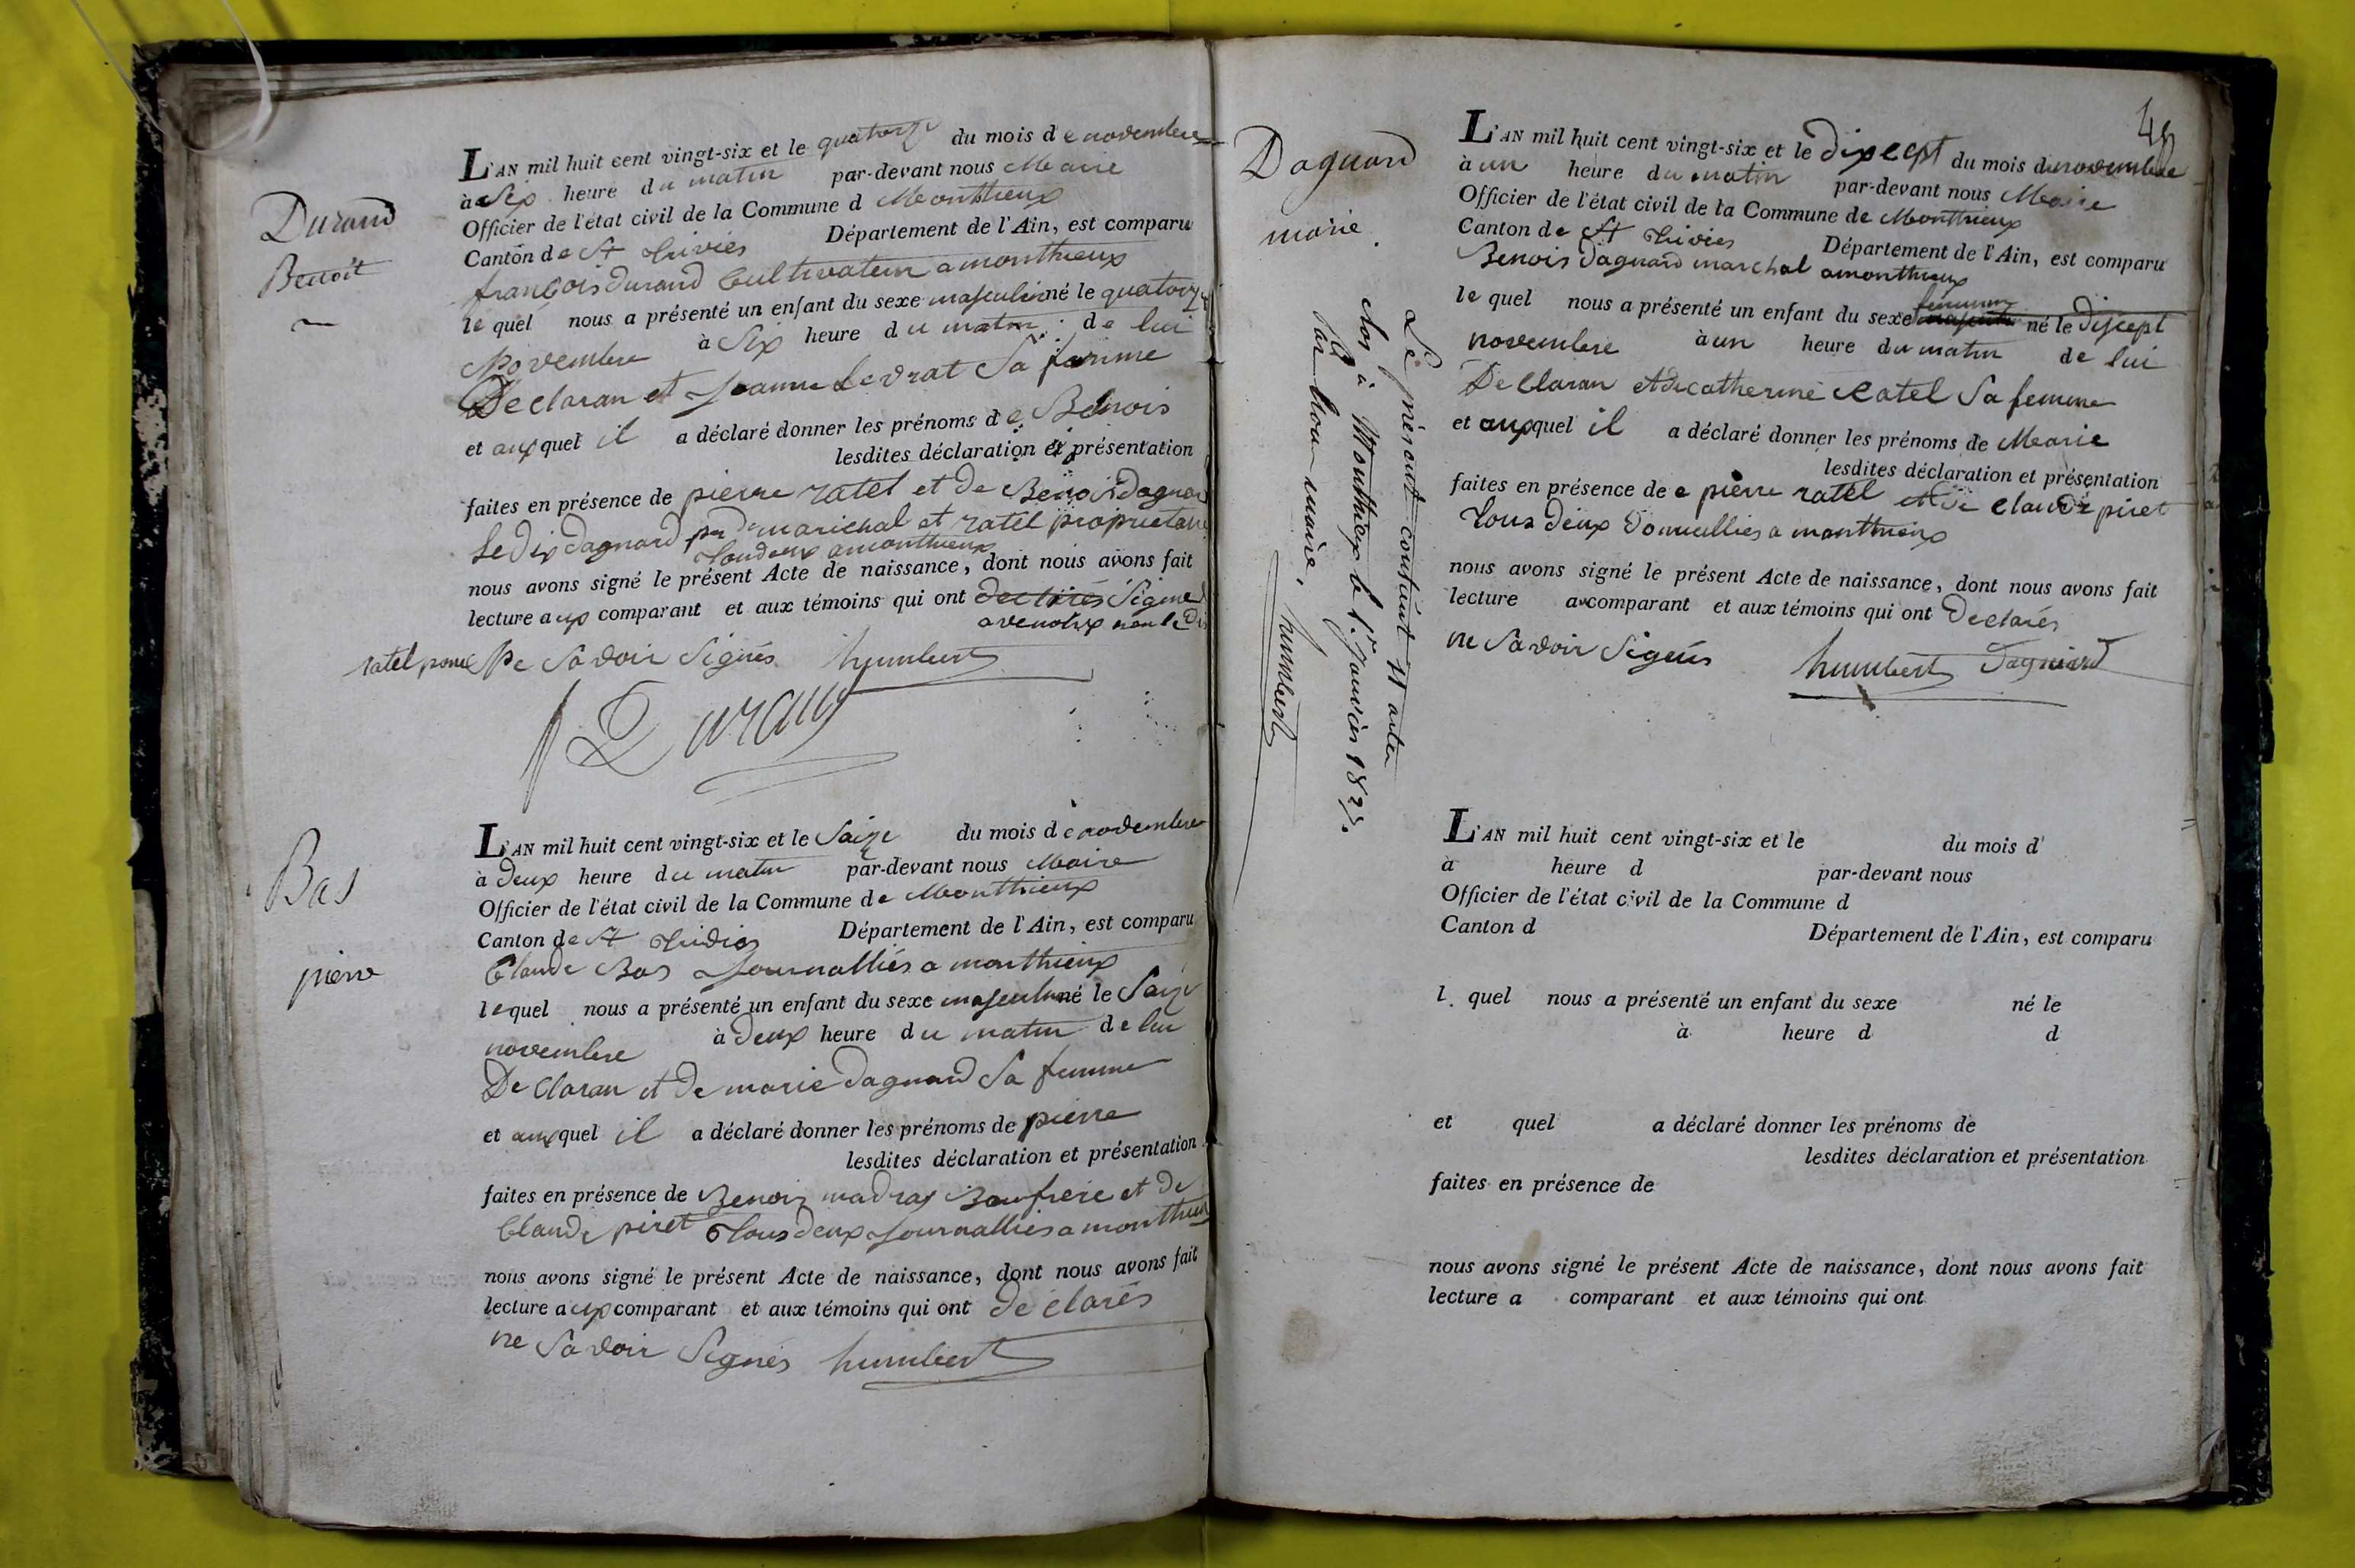 Durand
Benoit
L'AN mil huit cent vingt-six et le quatorze du mois de novembre
à Six heure du matin par-devant nous Maire
Officier de l'état civil de la Commune d Monthieux
Canton de St Trivier Département de l'Ain, est comparu
françois durand Cultivateur a monthieux
le quel nous a présenté un enfant du sexe masculin né le quatorze
Novembre à Six heure du matin de lui
Declaran et Jeanne Levrat Sa femme
et aux quel il a déclaré donner les prénoms de Benois
lesdites déclaration et présentation
faites en présence de pierre ratel et de Benois dagnard
Le dix dagnard marichal et ratel propriétaire
Toudeux a monthieux
nous avons signé le présent Acte de naissance, dont nous avons fait
lecture aux comparant et aux témoins qui ont declarés Signé
avenous non le dis
ratel pierre Ne Savoir Signés humbert
Durand
Bas
pierre
L'AN mil huit cent vingt-six et le Saize du mois de novembre
à deux heure du matin par-devant nous Maire
Officier de l'état civil de la Commune de Monthieux
Canton de St Trivier Département de l'Ain, est comparu
Claude Bas Journalliés a monthieux
lequel nous a présenté un enfant du sexe masculin né le Saize
novembre à deux heure du matin de lui
De Claran et de marie dagnard Sa femme
et aux quel il a déclaré donner les prénoms de pierre
lesdites déclaration et présentation
faites en présence de Benois madras Baufrere et de
Claude piret Tous deux Journalliés a monthieux
nous avons signé le présent Acte de naissance, dont nous avons fait
lecture aux comparant et aux témoins qui ont déclarés
ne Savoir Signés humbert
Dagnard
marie
Le présent contient 71 actes
clos à Monthieux le 1er janvier 1827.
Par nous maire,
humbert
L'AN mil huit cent vingt-six et le dixcept du mois de novembre
à un heure du matin par-devant nous Maire
Officier de l'état civil de la Commune de Monthieux
Canton de St Trivier Département de l'Ain, est comparu
Benois dagnard marchal a monthieux
le quel nous a présenté un enfant du sexe masculin feminin né le discept
novembre à un heure du matin de lui
De Claran et de catherine ratel Sa femme
et aux quel il a déclaré donner les prénoms de Marie
lesdites déclaration et présentation
faites en présence de e pierre ratel et de claude piret
Tous deux domicilliés a monthieux
nous avons signé le présent Acte de naissance, dont nous avons fait
lecture au comparant et aux témoins qui ont declarés
ne Savoir Signés humbert Dagniard
L'AN mil huit cent vingt-six et le du mois d'
à heure d par-devant nous
Officier de l'état civil de la Commune d
Canton d Département de l'Ain, est comparu
l. quel nous a présenté un enfant du sexe né le
à heure d d
et quel a déclaré donner les prénoms de
lesdites déclaration et présentation
faites en présence de
nous avons signé le présent Acte de naissance, dont nous avons fait
lecture a comparant et aux témoins qui ont